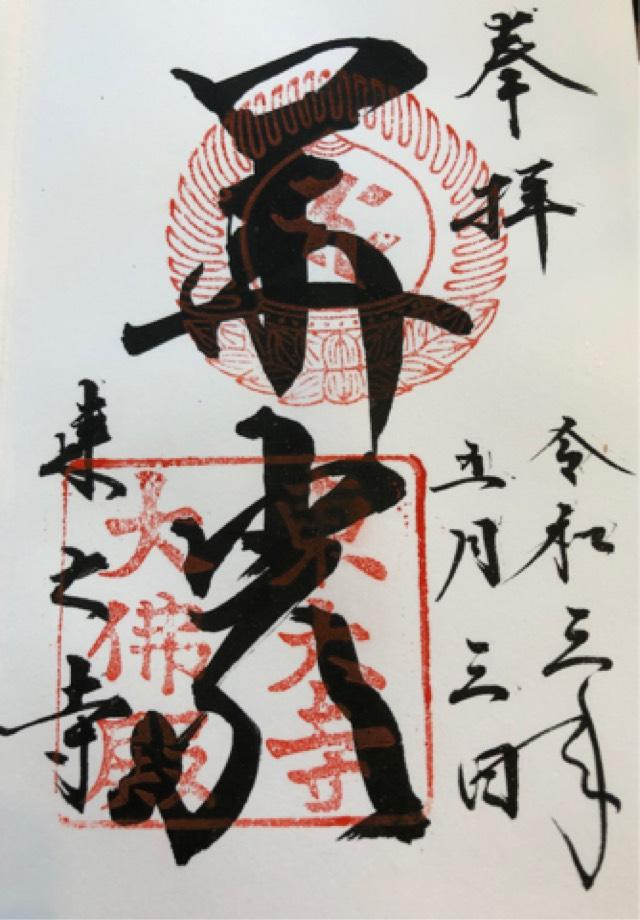 奉拝
令和三年
五月三日
華厳
東大寺
東大寺
大佛殿